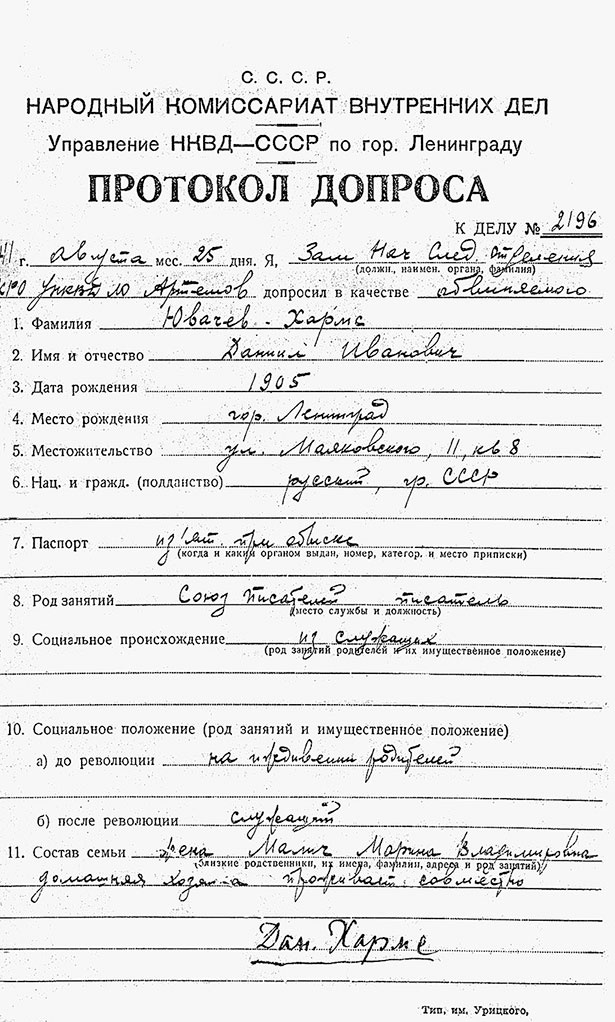 С. С. С. Р.
НАРОДНЫЙ КОМИССАРИАТ ВНУТРЕННИХ ДЕЛ
Управление НКВД—СССР по гор. Ленинграду
ПРОТОКОЛ ДОПРОСА
К ДЕЛУ № 2196
41 г. августа мес. 25 дня. Я, Зам Нач След. Отделения
(должн., наимен. органа, фамилия)
КРО УНКВД ЛО Артемов допросил в качестве обвиняемого
1. Фамилия Ювачев-Хармс
2. Имя и отчество Даниил Иванович
3. Дата рождения 1905
4. Место рождения гор. Ленинград
5. Местожительство ул. Маяковского, 11, кв 8
6. Нац. и гражд. (подданство) русский, гр. СССР
7. Паспорт из'ят при обыске
(когда и каким органом выдан, номер, категор. и место приписки)
8. Род занятий Союз писателей писатель
(место службы и должность)
9. Социальное происхождение из служащих
(род занятий родителей и их имущественное положение)
10. Социальное положение (род занятий и имущественное положение)
а) до революции на иждивении родителей
б) после революции служащий
11. Состав семьи жена Малич Марина Владимировна
(близкие родственники, их имена, фамилии, адреса и род занятий)
домашняя хозяйка проживает совместно
Дан. Хармс
Тип. им. Урицкого,